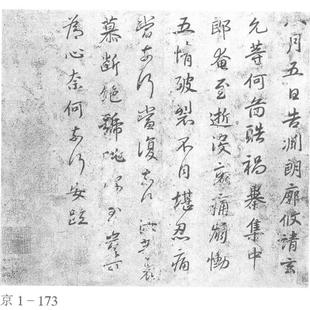 八月五日告淵朗廓攸靖玄
允等何圖酷禍暴集中
郎奄至逝沒哀痛崩慟
五情破裂不自堪忍痛
當奈何當復奈何汝等哀
慕斷絕號咷深至豈可
為心奈何奈何安疏
京 1-173